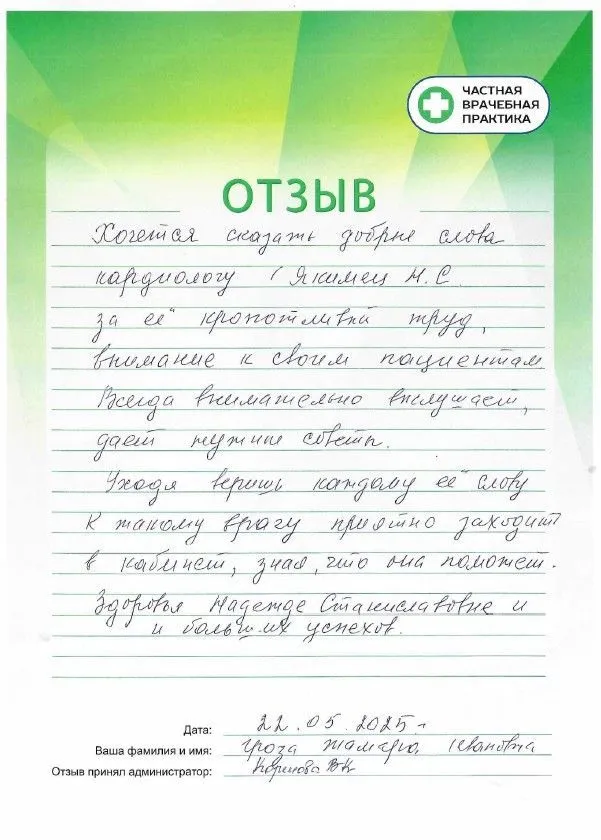 ЧАСТНАЯ
ВРАЧЕБНАЯ
ПРАКТИКА
ОТЗЫВ
Хочется сказать добрые слова
кардиологу Якимец Н.С.
за её кропотливый труд,
внимание к своим пациентам
Всегда внимательно выслушает,
дает нужные советы.
Уходя веришь каждому её слову
К такому врачу приятно заходить
в кабинет, зная, что она поможет.
Здоровья Надежде Станиславовне и
и больших успехов.
Дата: 22.05.2025г
Ваша фамилия и имя: Гроза Тамара Ивановна
Отзыв принял администратор: